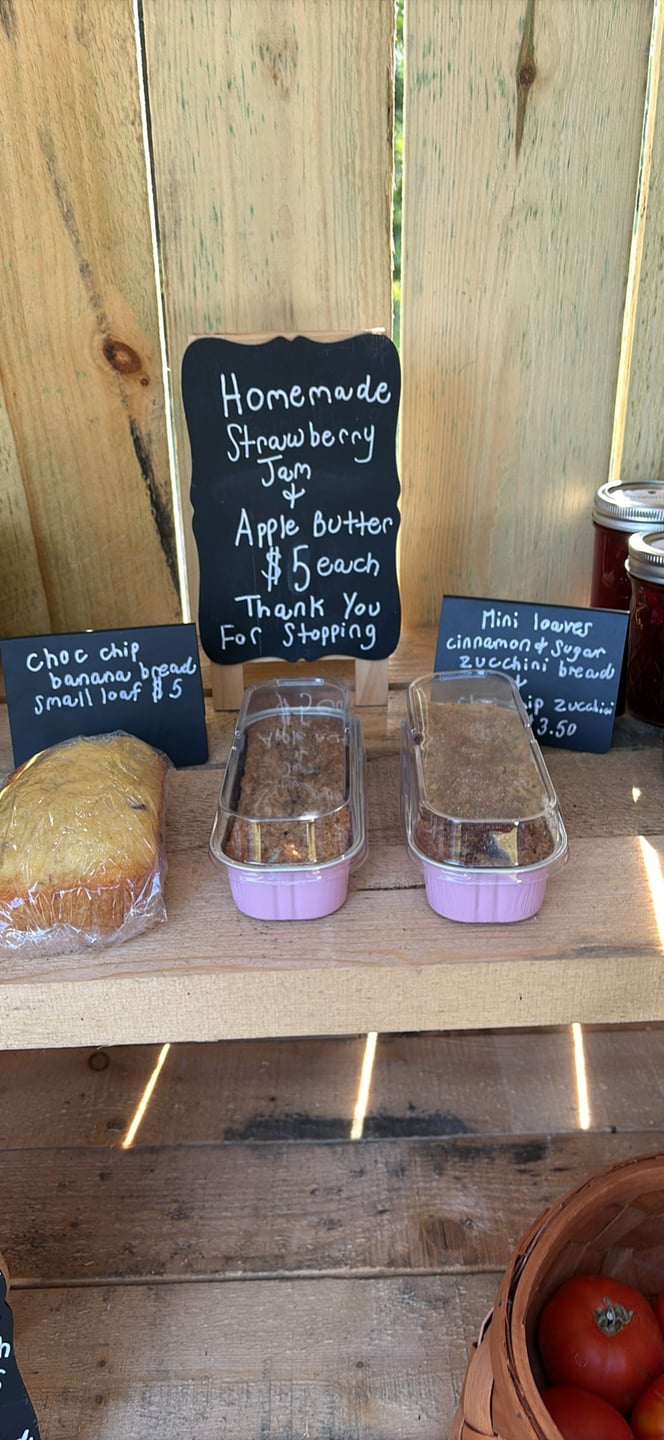 Homemade
Strawberry
Jam
&
Apple Butter
$5 each
Thank You
For Stopping
Choc chip
banana bread
small loaf $5
Mini loaves
cinnamon & sugar
zucchini bread
zucchini
3.50